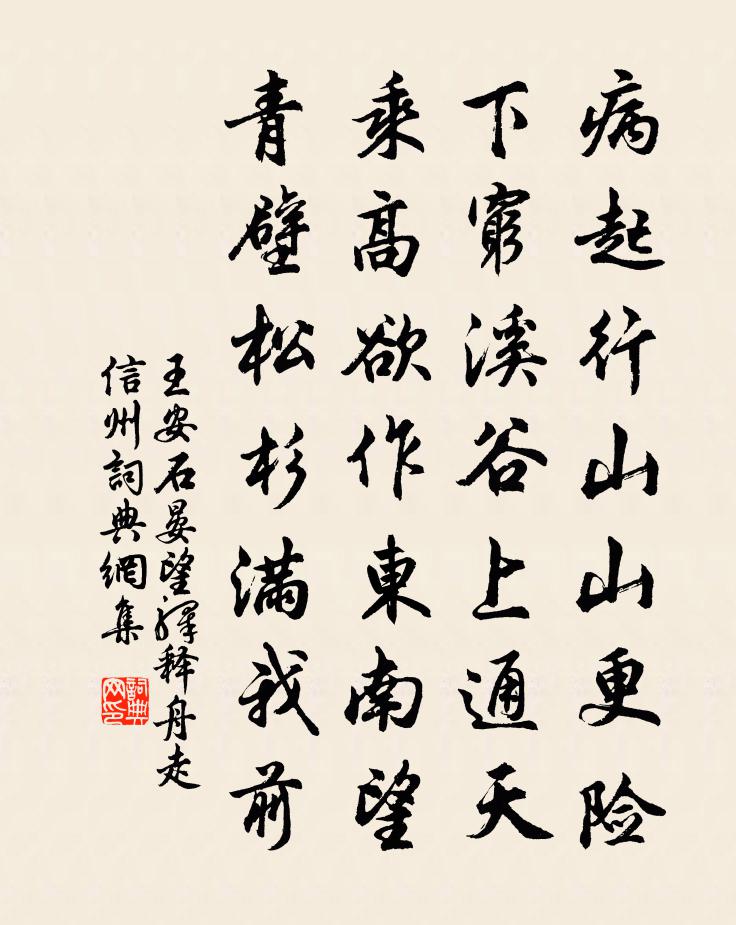 病起行山山更险
下窮溪谷上通天
乘高欲作東南望
青壁松杉滿我前
王安石晏望驛释舟走
信州詞典網集
詞典
网印